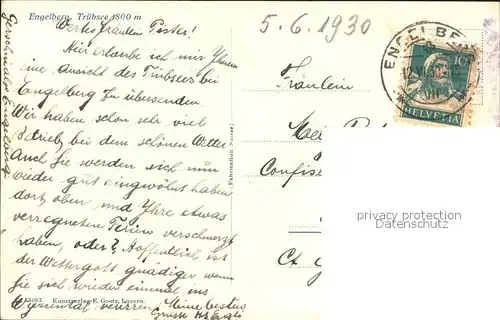 Engelberg. Trübsee 1800 m
5.6.1930
Wertes Fräulein Pester!
Hier erlaube ich mir Ihnen
eine Ansicht des Trübsees bei
Engelberg zu übersenden.
Wir haben schon sehr viel
Betrieb bei dem schönen Wetter
Auch Sie werden sich nun
wieder gut eingewöhnt haben
dort oben, und Ihre etwas
verregneten Ferien verschmerzt
haben, oder? Hoffentlich ist
der Wettergott gnädiger wenn
Sie sich wieder einmal ins
Meine besten
Grüsse
Gerschnialp Engelberg
Kunstverlag E. Goetz, Luzern.
ENGELBE
HELVETIA
10
Fräulein
Confis
Ct.
privacy protection
watermark